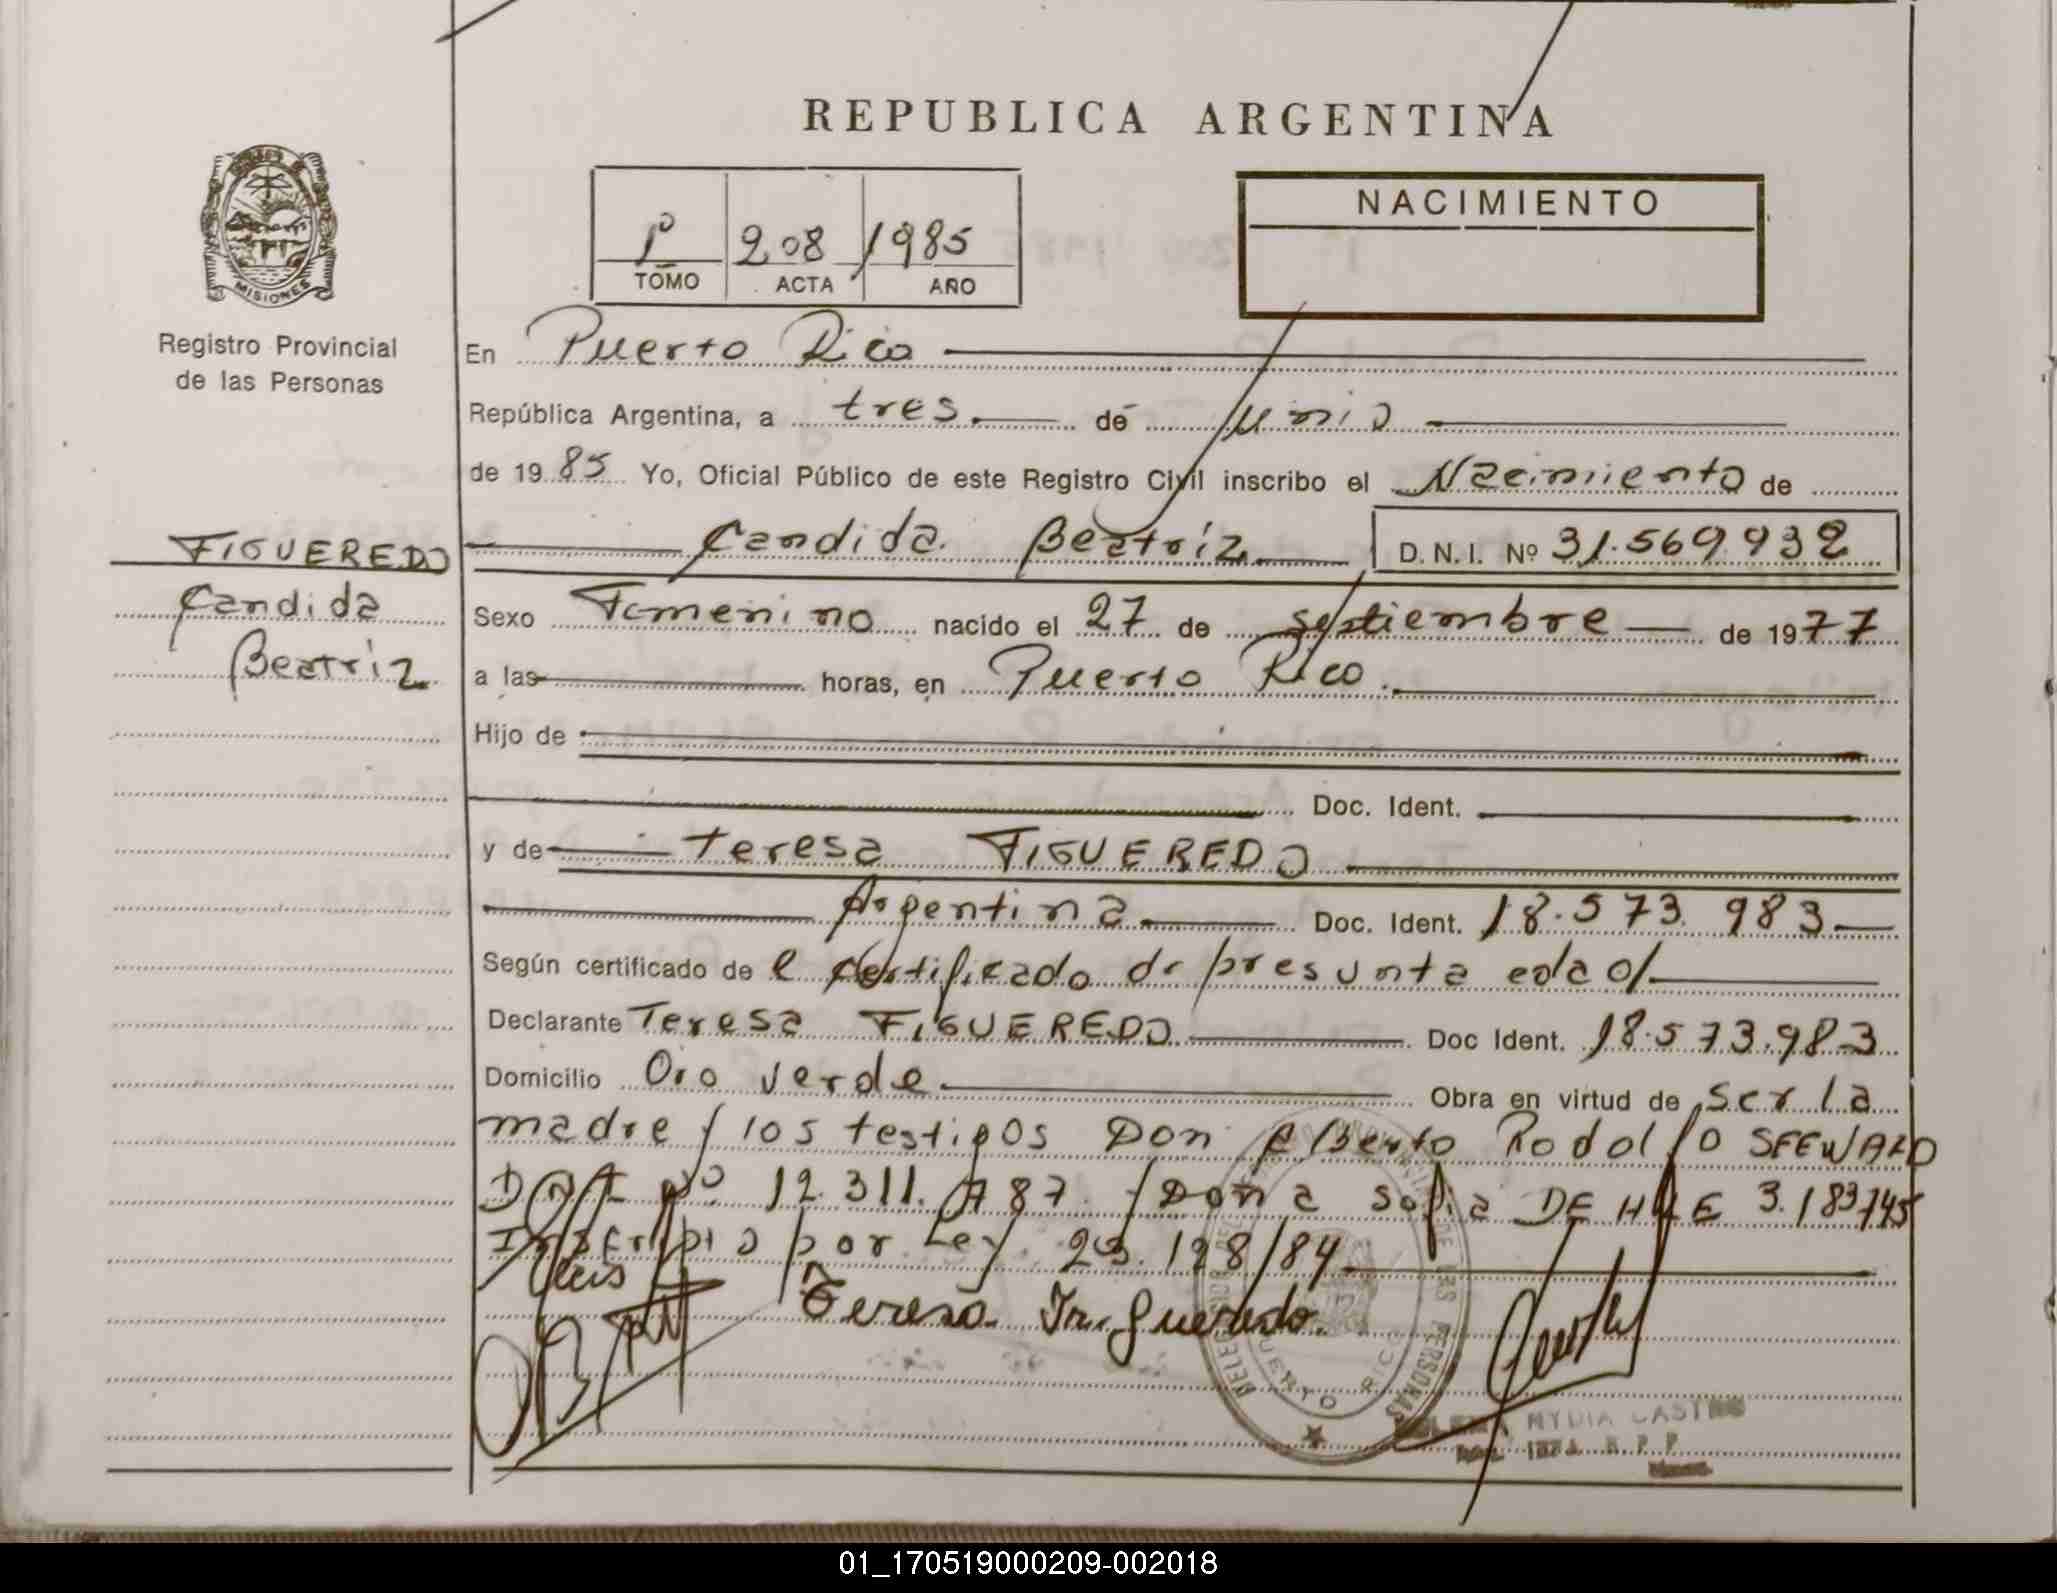 REPUBLICA ARGENTINA
MISIONES
Registro Provincial
de las Personas
1º 208 1985
TOMO ACTA AÑO
NACIMIENTO
En Puerto Rico
República Argentina, a tres de Junio
de 1985 Yo, Oficial Público de este Registro Civil inscribo el Nacimiento de
Candida Beatriz D.N.I. Nº 31.569.932
FIGUEREDO
Candida
Beatriz
Sexo Femenino nacido el 27 de septiembre de 1977
a las horas, en Puerto Rico.
Hijo de
Doc. Ident.
y de Teresa FIGUEREDO
Argentina Doc. Ident. 18.573.983
Según certificado de el certificado de presunta edad
Declarante Teresa FIGUEREDO Doc Ident. 18.573.983
Domicilio Oro verde Obra en virtud de ser la
madre y los testigos Don Alberto Rodolfo SEEWALD
DNI Nº 12.311.787 y Doña Sofia DE 3.183745
Inscripto por Ley 23.128/84
Teresa Figueredo.
PUERTO RICO
DE LAS PERSONAS
NYDIA CASTRO
01_170519000209-002018